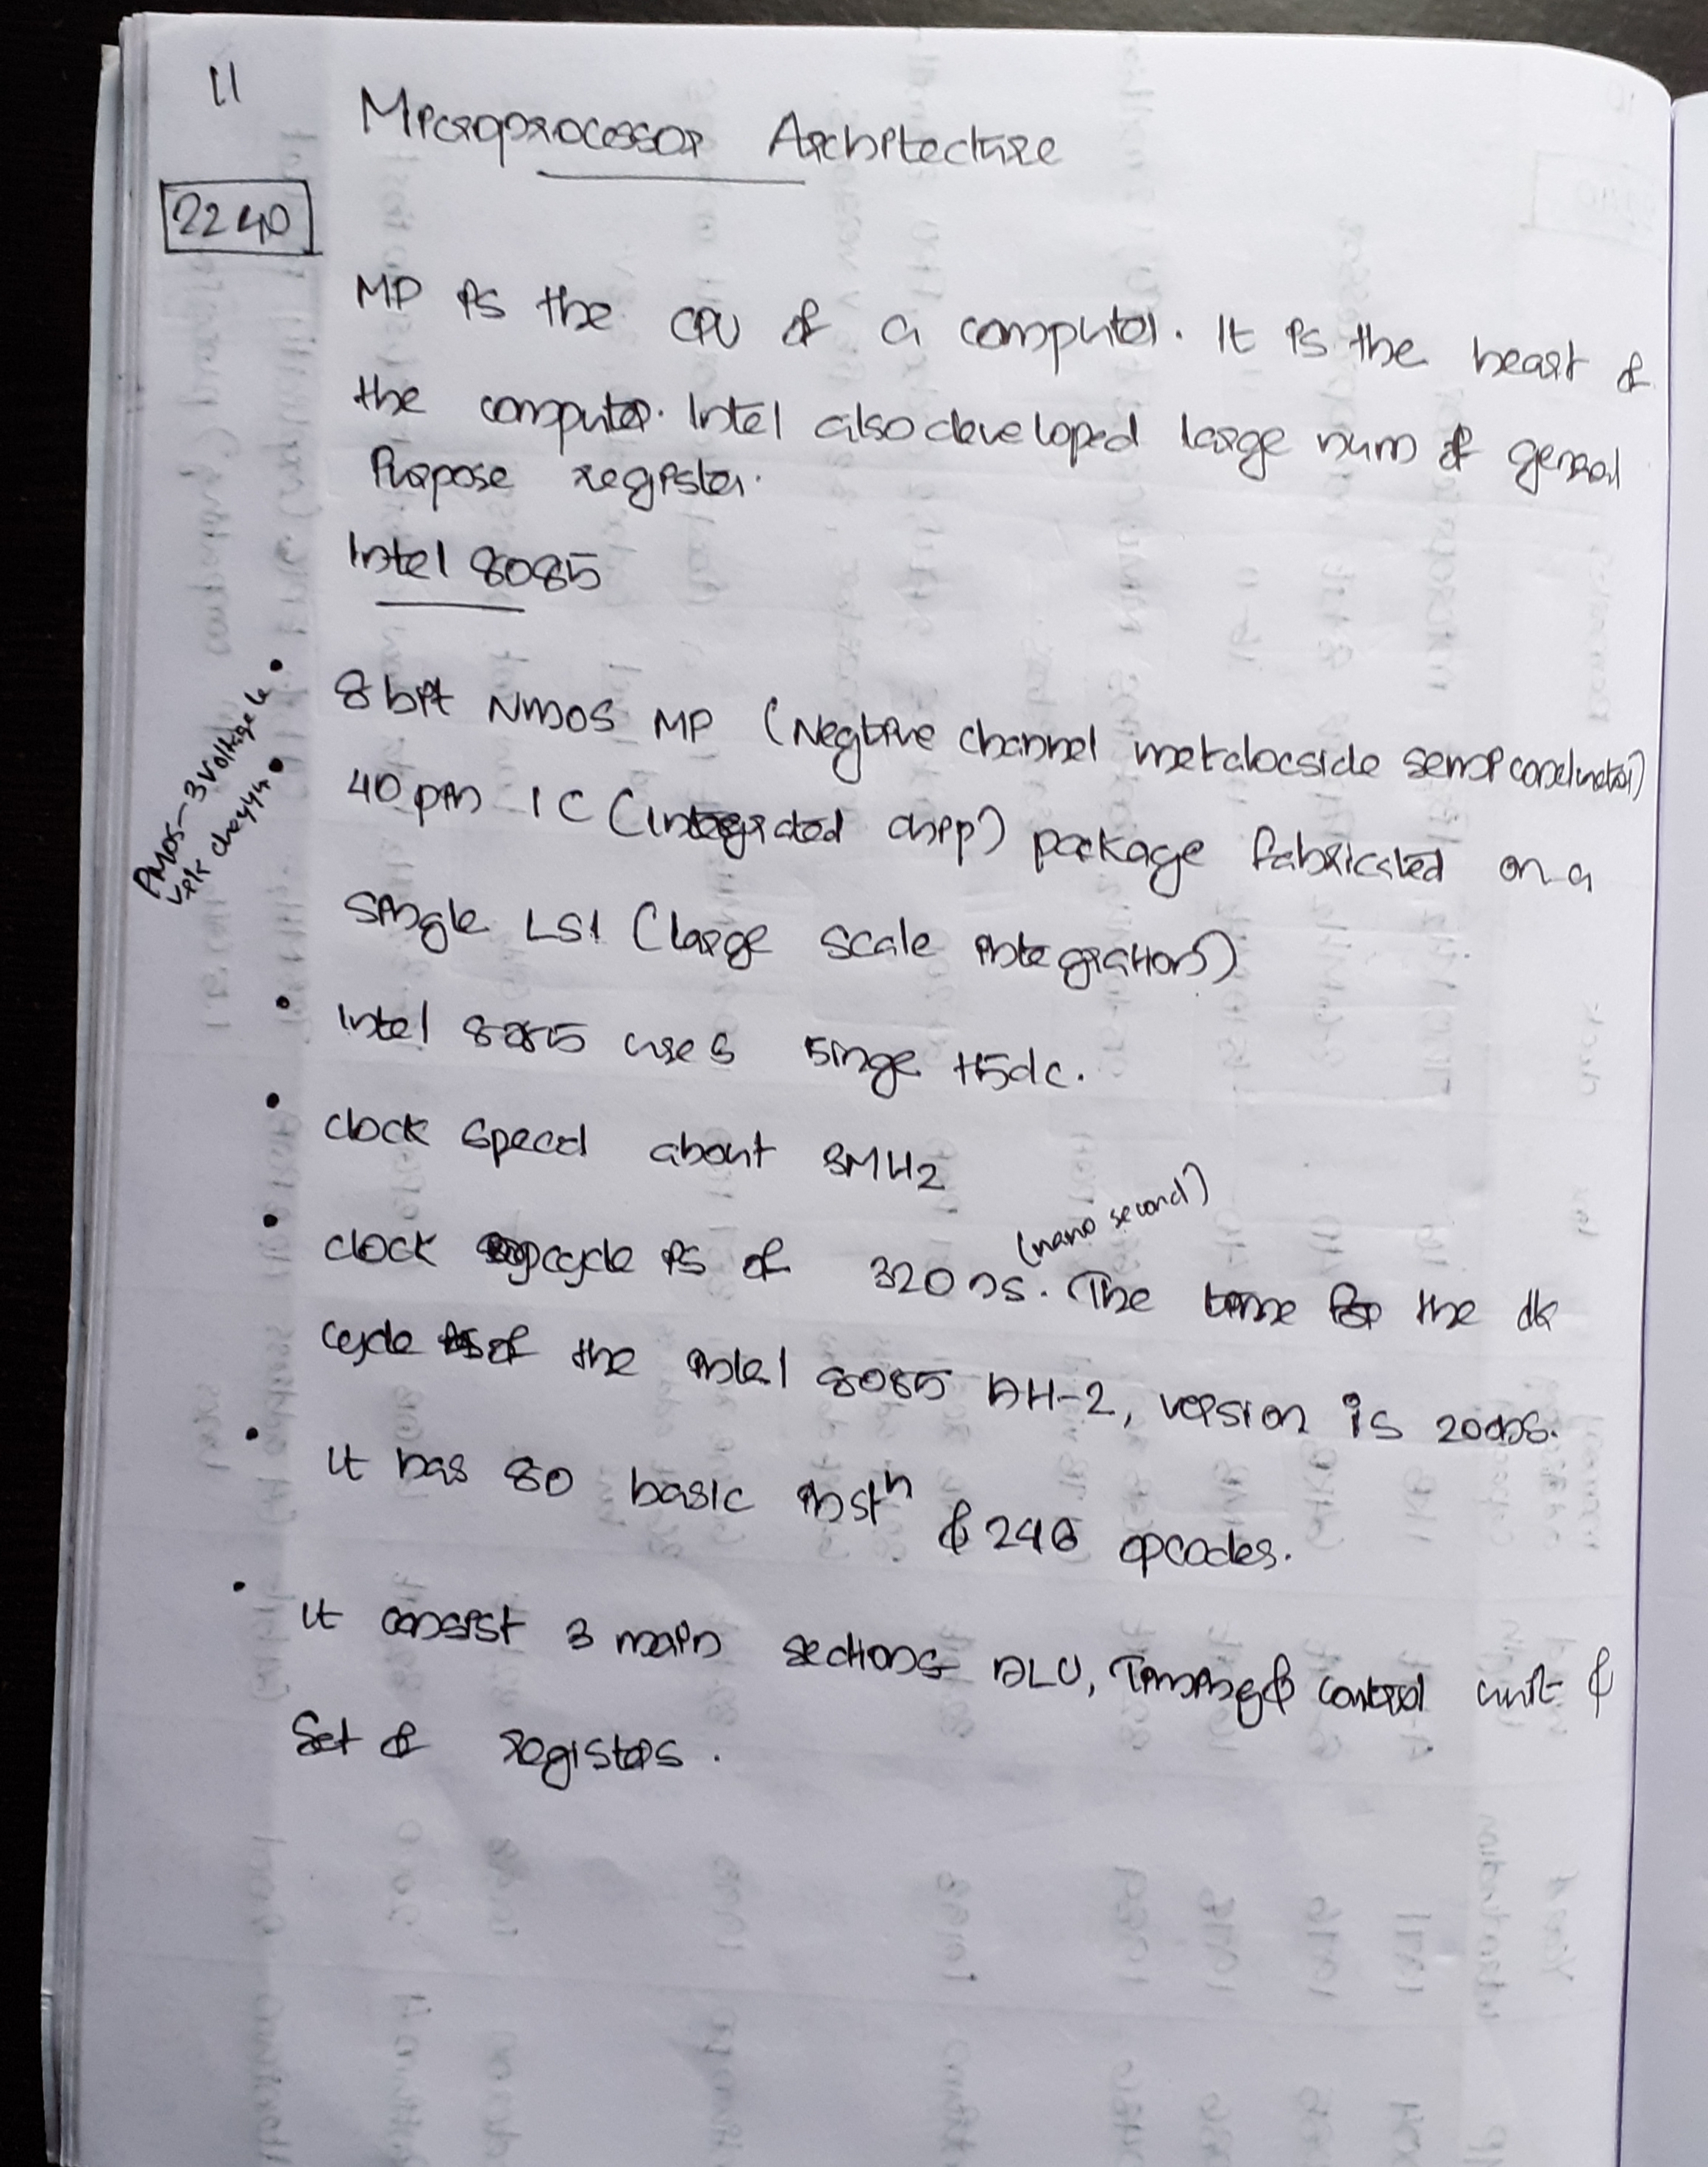 11
Microprocessor Architecture
2240
MP is the CPU of a computer. It is the heart of
the computer. Intel also developed large num of genral
Purpose register.
Intel 8085
8 bit Nmos MP (Negtive channel metalocside semiconductor)
40 pin IC (integrated chip) package fabricated on a
single LSI (large scale integration)
PMOS - 3 voltage le
work cheyyu
Intel 8085 uses singe +5dc.
clock speed about 3MHz
clock cycle is of 320 ns. The time for the clk
(nano second)
cycle of the intel 8085 AH-2, version is 200ns.
It has 80 basic instn & 246 opcodes.
It consist 3 main sections ALU, Timing & control unit &
Set of registers.